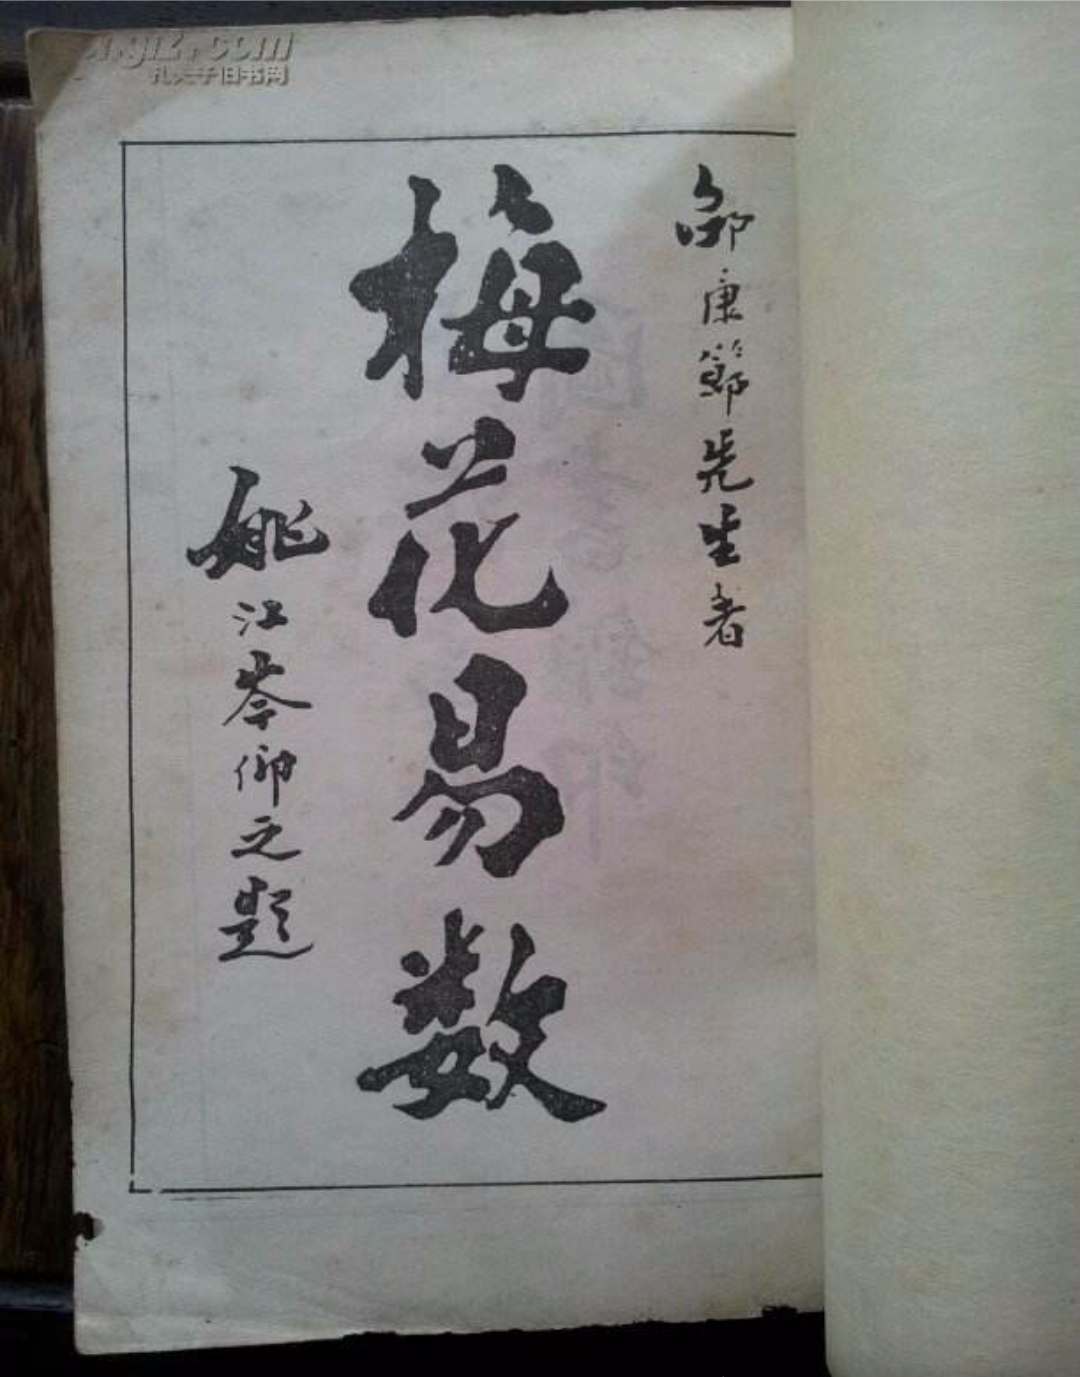 邵康節先生著
梅花易数
姚江岑仰之題
孔夫子旧书网